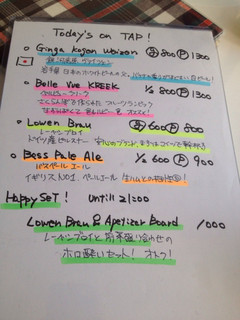 Today's on TAP!
Ginga Kogen Weizen Ⓢ 800 Ⓟ 1300
銀河高原 ヴァイツェン
岩手県 日本のホワイトビール
Belle Vue KREEK 1/2 800 Ⓟ 1300
ベルビュークリーク
さくらんぼで作られた フルーツランビック
Lowen Brau Ⓢ 600 Ⓟ 800
レーベンブロイ
ドイツ産ピルスナー
Bass Pale Ale 1/2 600 Ⓟ 900
バスペールエール
イギリスNo1 ペールエール 生ハムとの相性
Happy SET! Untill 21:00
Lowen Brau & Apetizer Board 1000
レーベンブロイと前菜盛り合わせの
ホロ酔いセット! オトク!